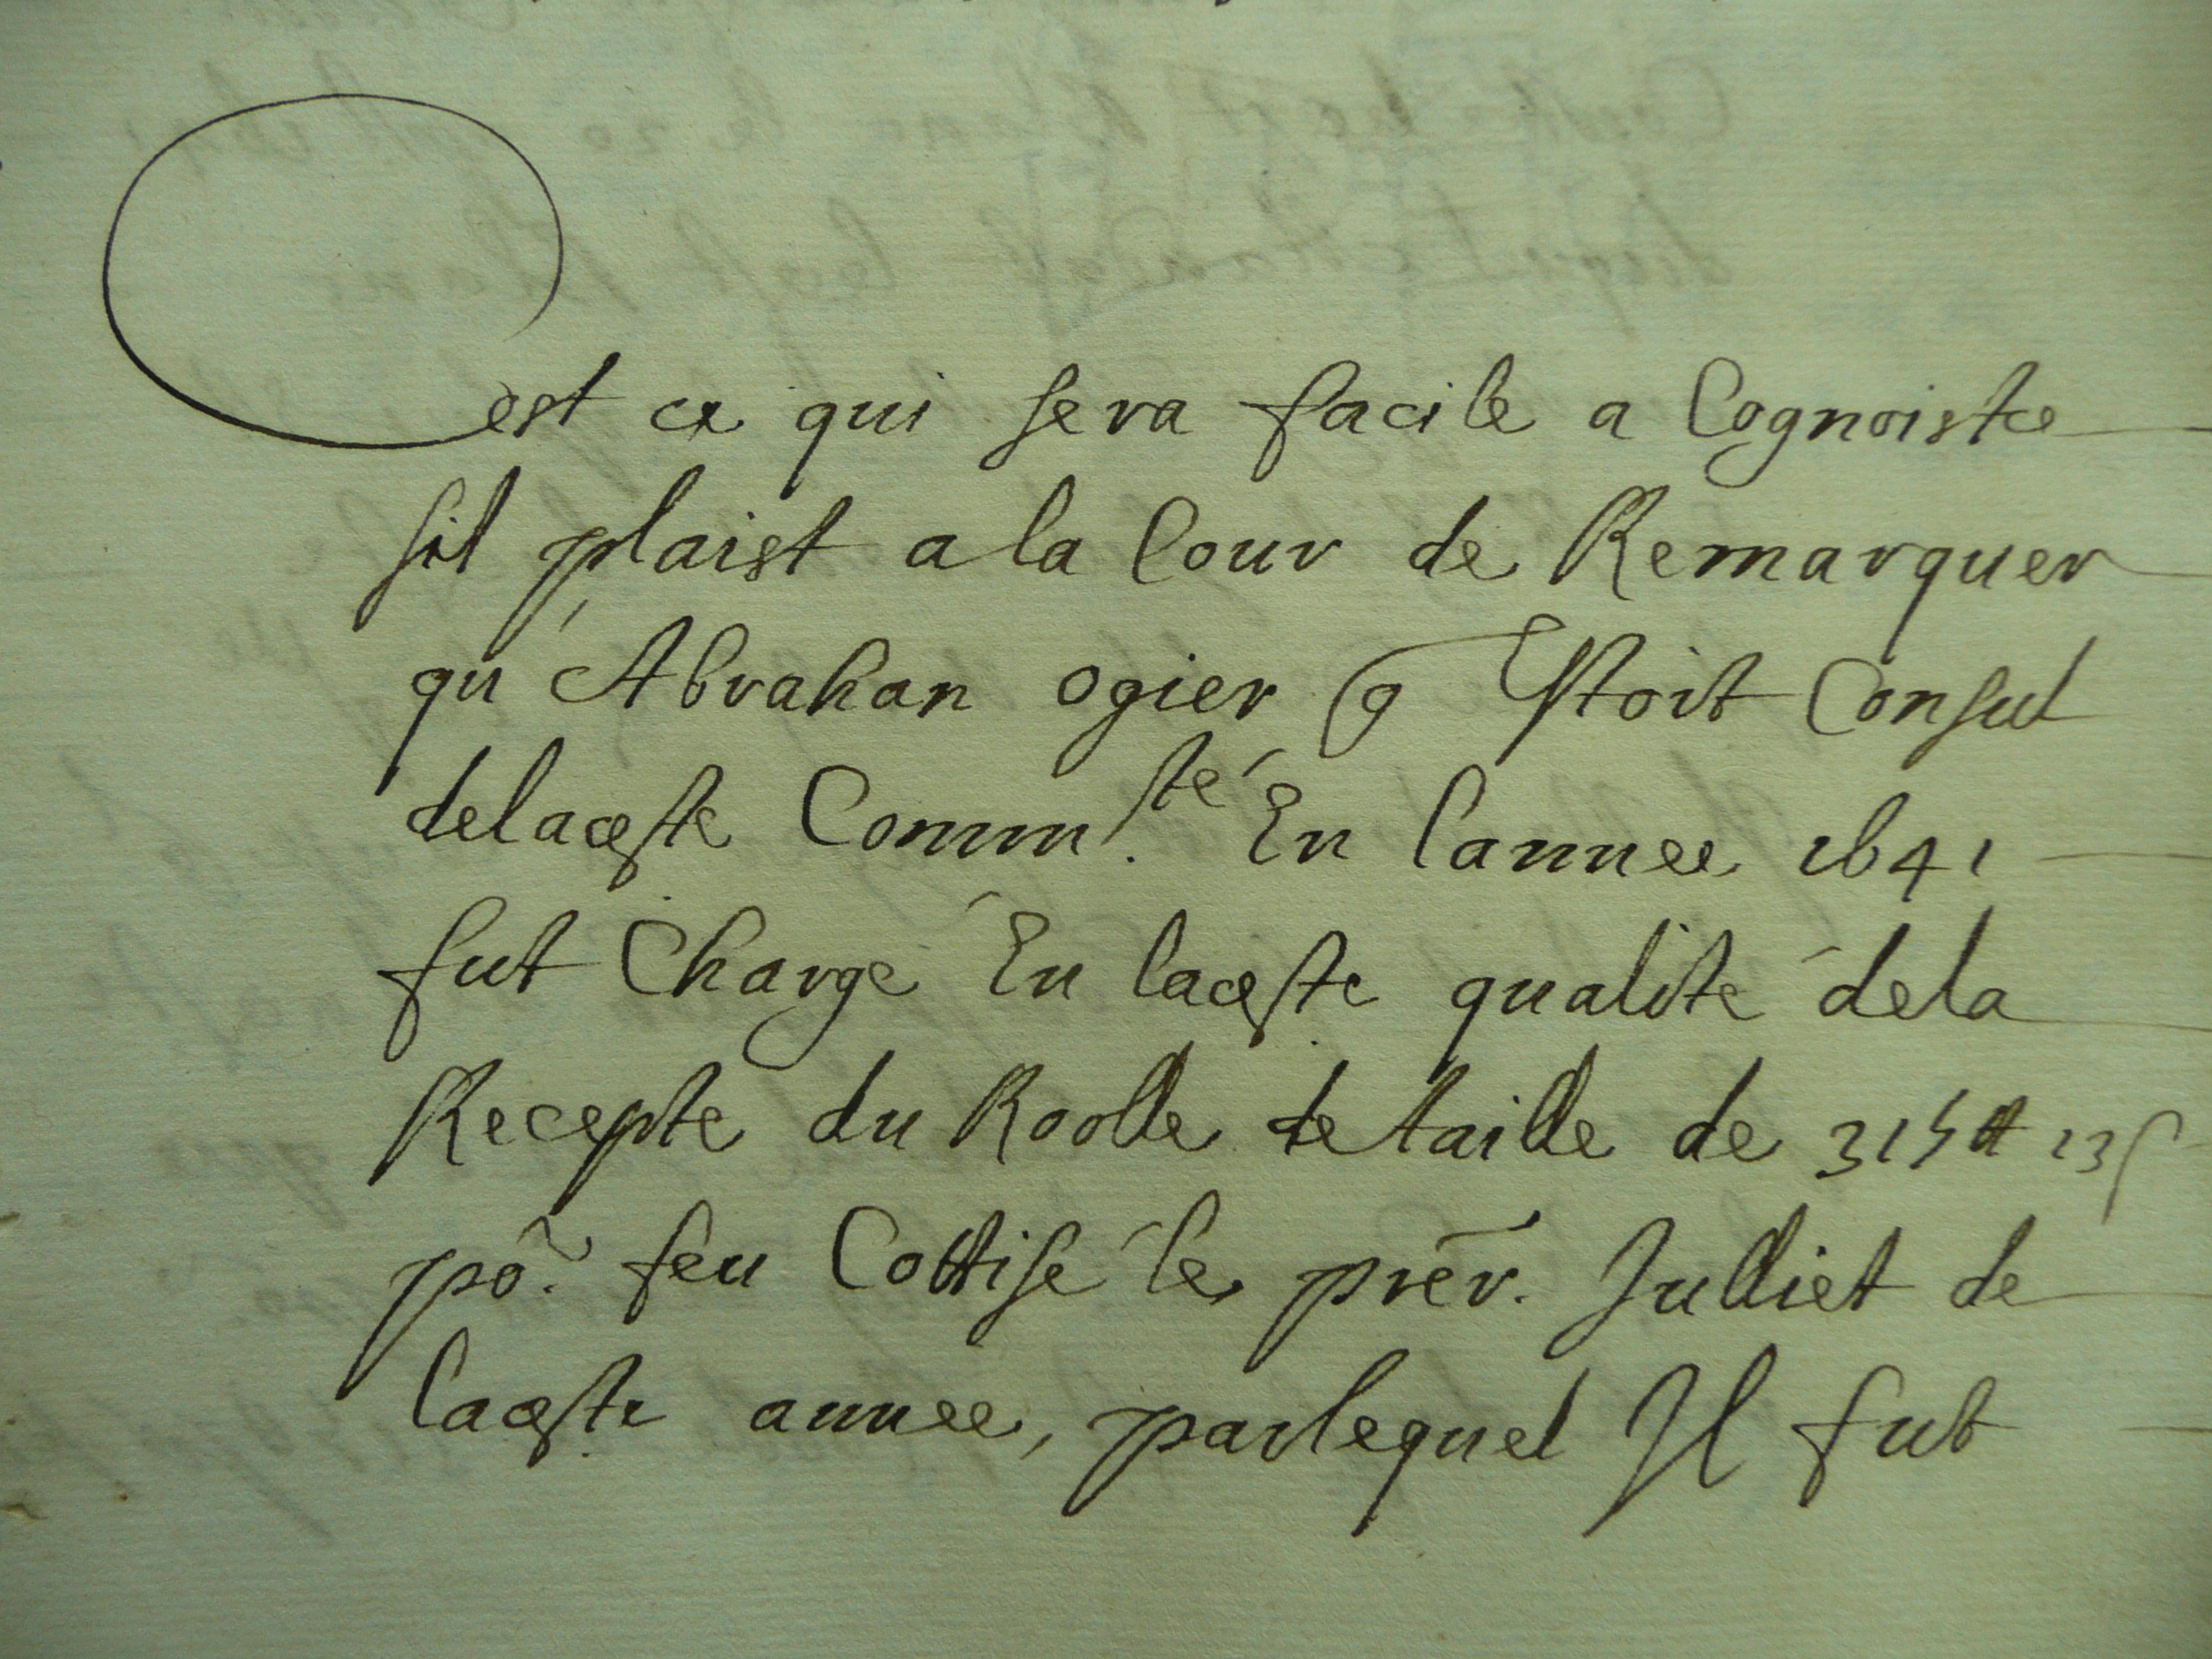 Cest ce qui sera facile a Cognoistre
sil plaist a la Cour de Remarquer
qu'Abrahan ogier q Estoit Consul
delaceste Commu.té En l'annee 1641
fut Chargé En laceste qualité dela
Recepte du Roolle de taille de 315 ₶ 13 s
po.r feu Cottisé le prer. Julliet de
laceste annee, parlequel Il fut